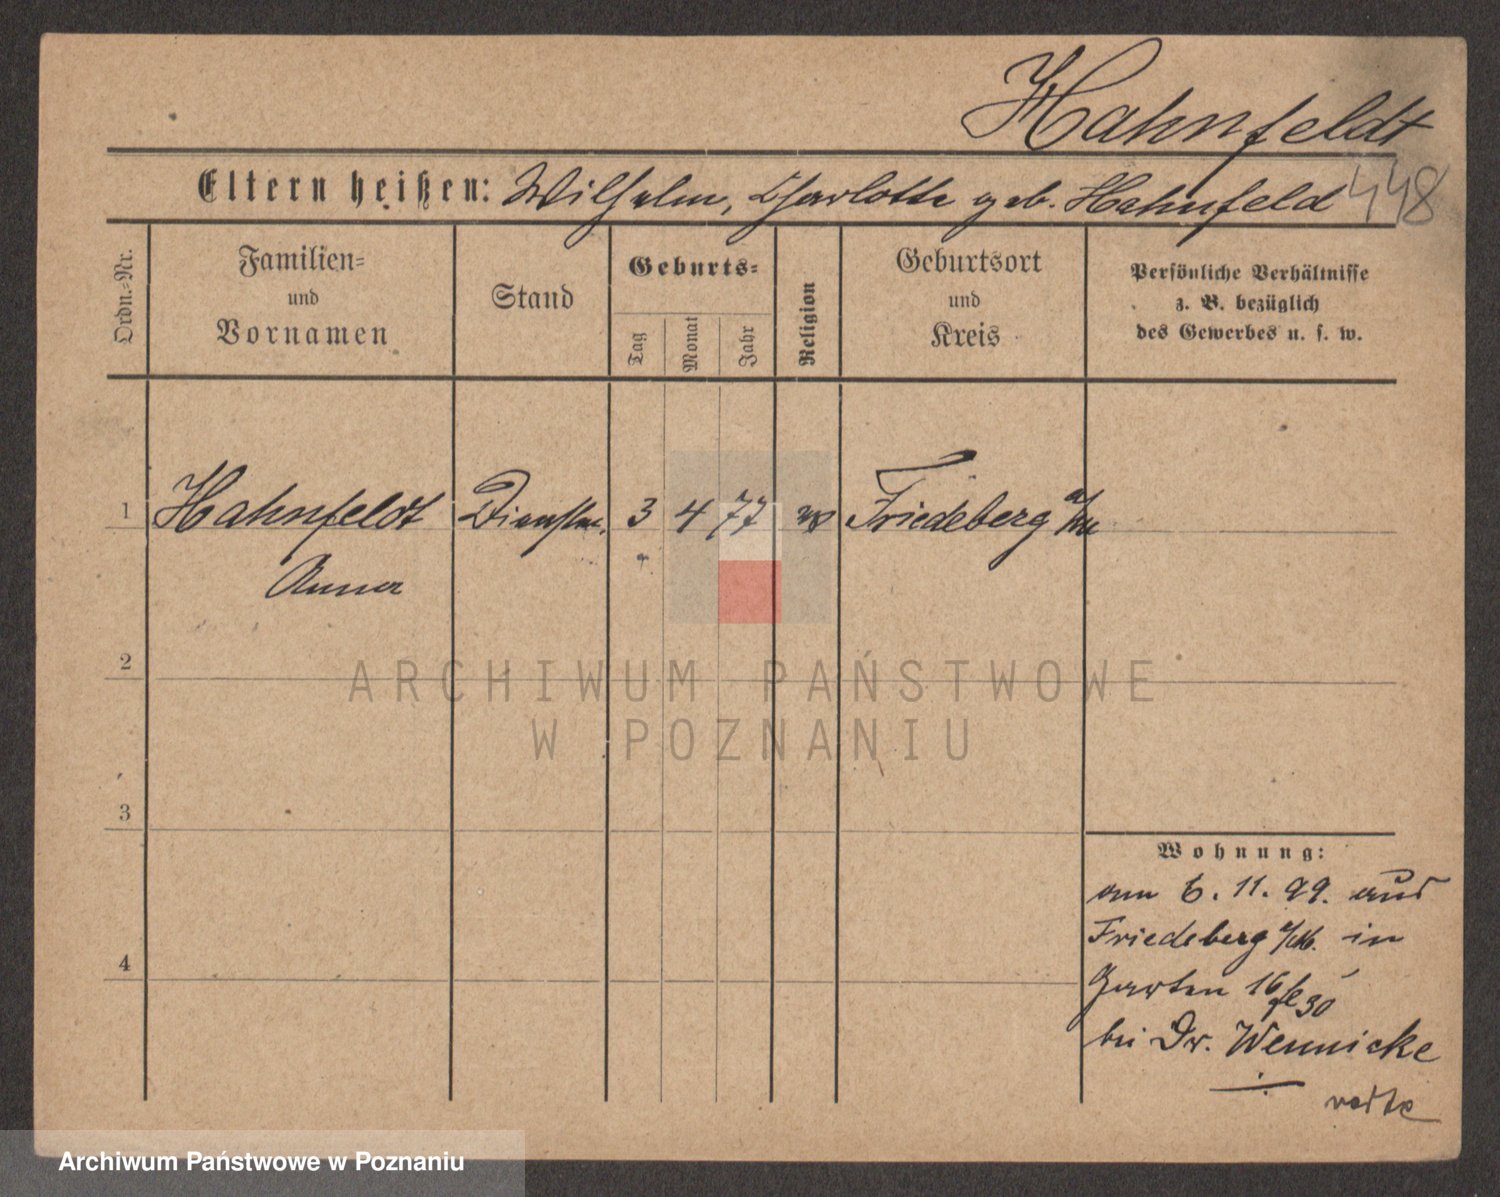 Hahnfeldt
Eltern heißen: Wilhelm, Charlotte geb. Hahnfeld 448
Ordn.-Nr.
Familien-
und
Vornamen
Stand
Geburts-
Tag
Monat
Jahr
Religion
Geburtsort
und
Kreis
Persönliche Verhältnisse
z. B. bezüglich
des Gewerbes u. s. w.
1 Hahnfeldt Dienstm. 3 4 77 Friedeberg
Anna
2
ARCHIWUM PAŃSTWOWE
W POZNANIU
3
Wohnung:
am 6. 11. 99. aus
Friedeberg in
4
Garten 16
bei Dr. Wennicke
Archiwum Państwowe w Poznaniu